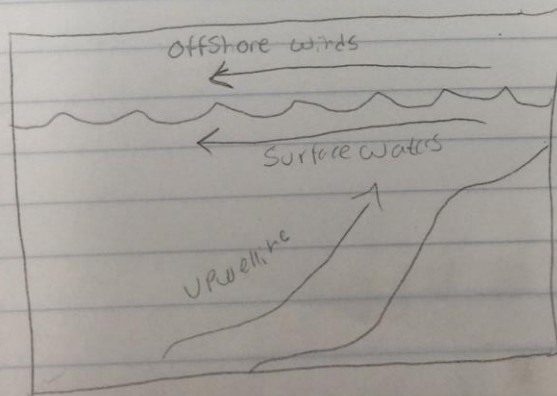 Offshore winds
Surface waters
Upwelling